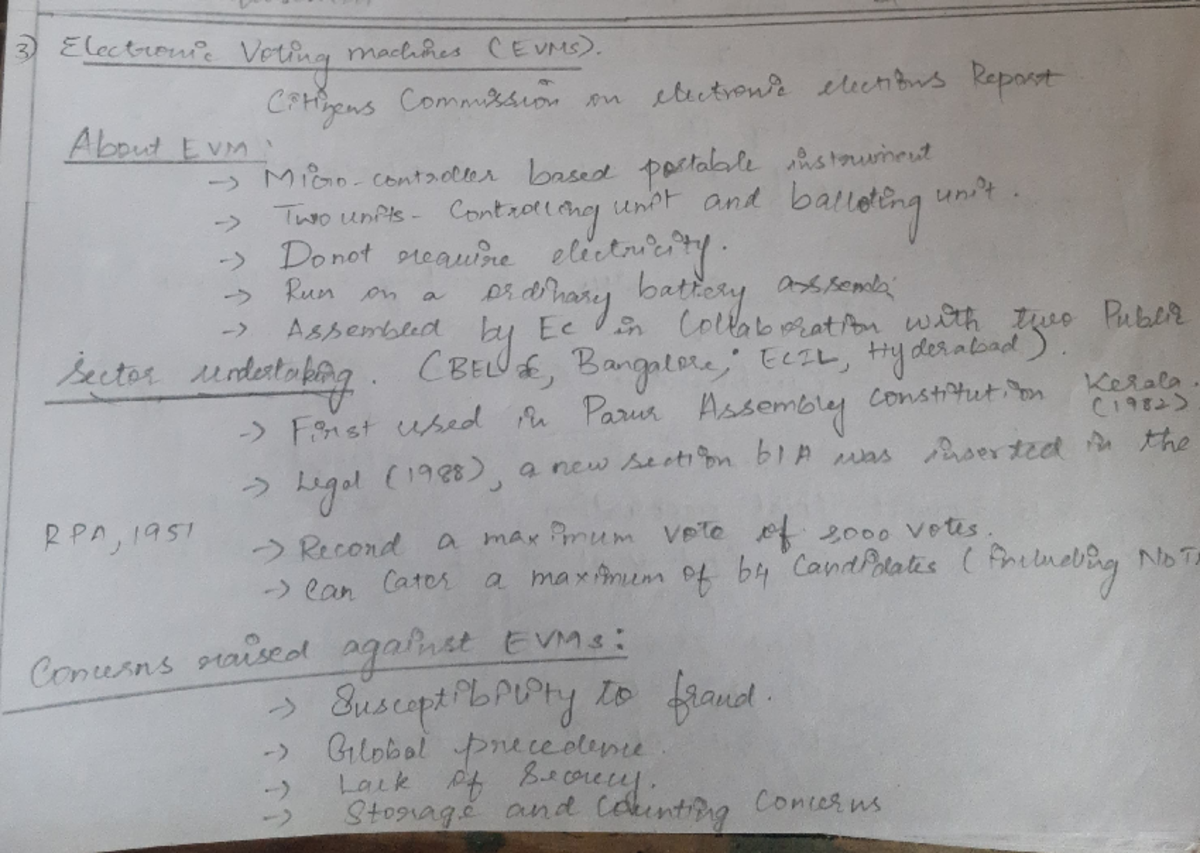 3) Electronic Voting machines (EVMS).
Citizens Commission on electronic elections Report
About EVM:
→ Micro-controller based portable instrument
→ Two units - Controlling unit and balloting unit.
→ Donot require electricity.
→ Run on a ordinary battery assemb
→ Assembled by Ec in Collaboration with two Public
Sector undertaking. (BEL, Bangalore; ECIL, Hyderabad).
→ First used in Parur Assembly constitution Kerala.
(1982)
→ Legal (1988), a new section 61A was inserted in the
RPA, 1951
→ Record a maximum vote of 2000 votes.
→ Can Cater a maximum of 64 Candidates (including NOT
Concerns raised against EVMs:
→ Susceptibility to fraud.
→ Global precedence.
→ Lack of Secrecy.
→ Storage and Counting Concerns